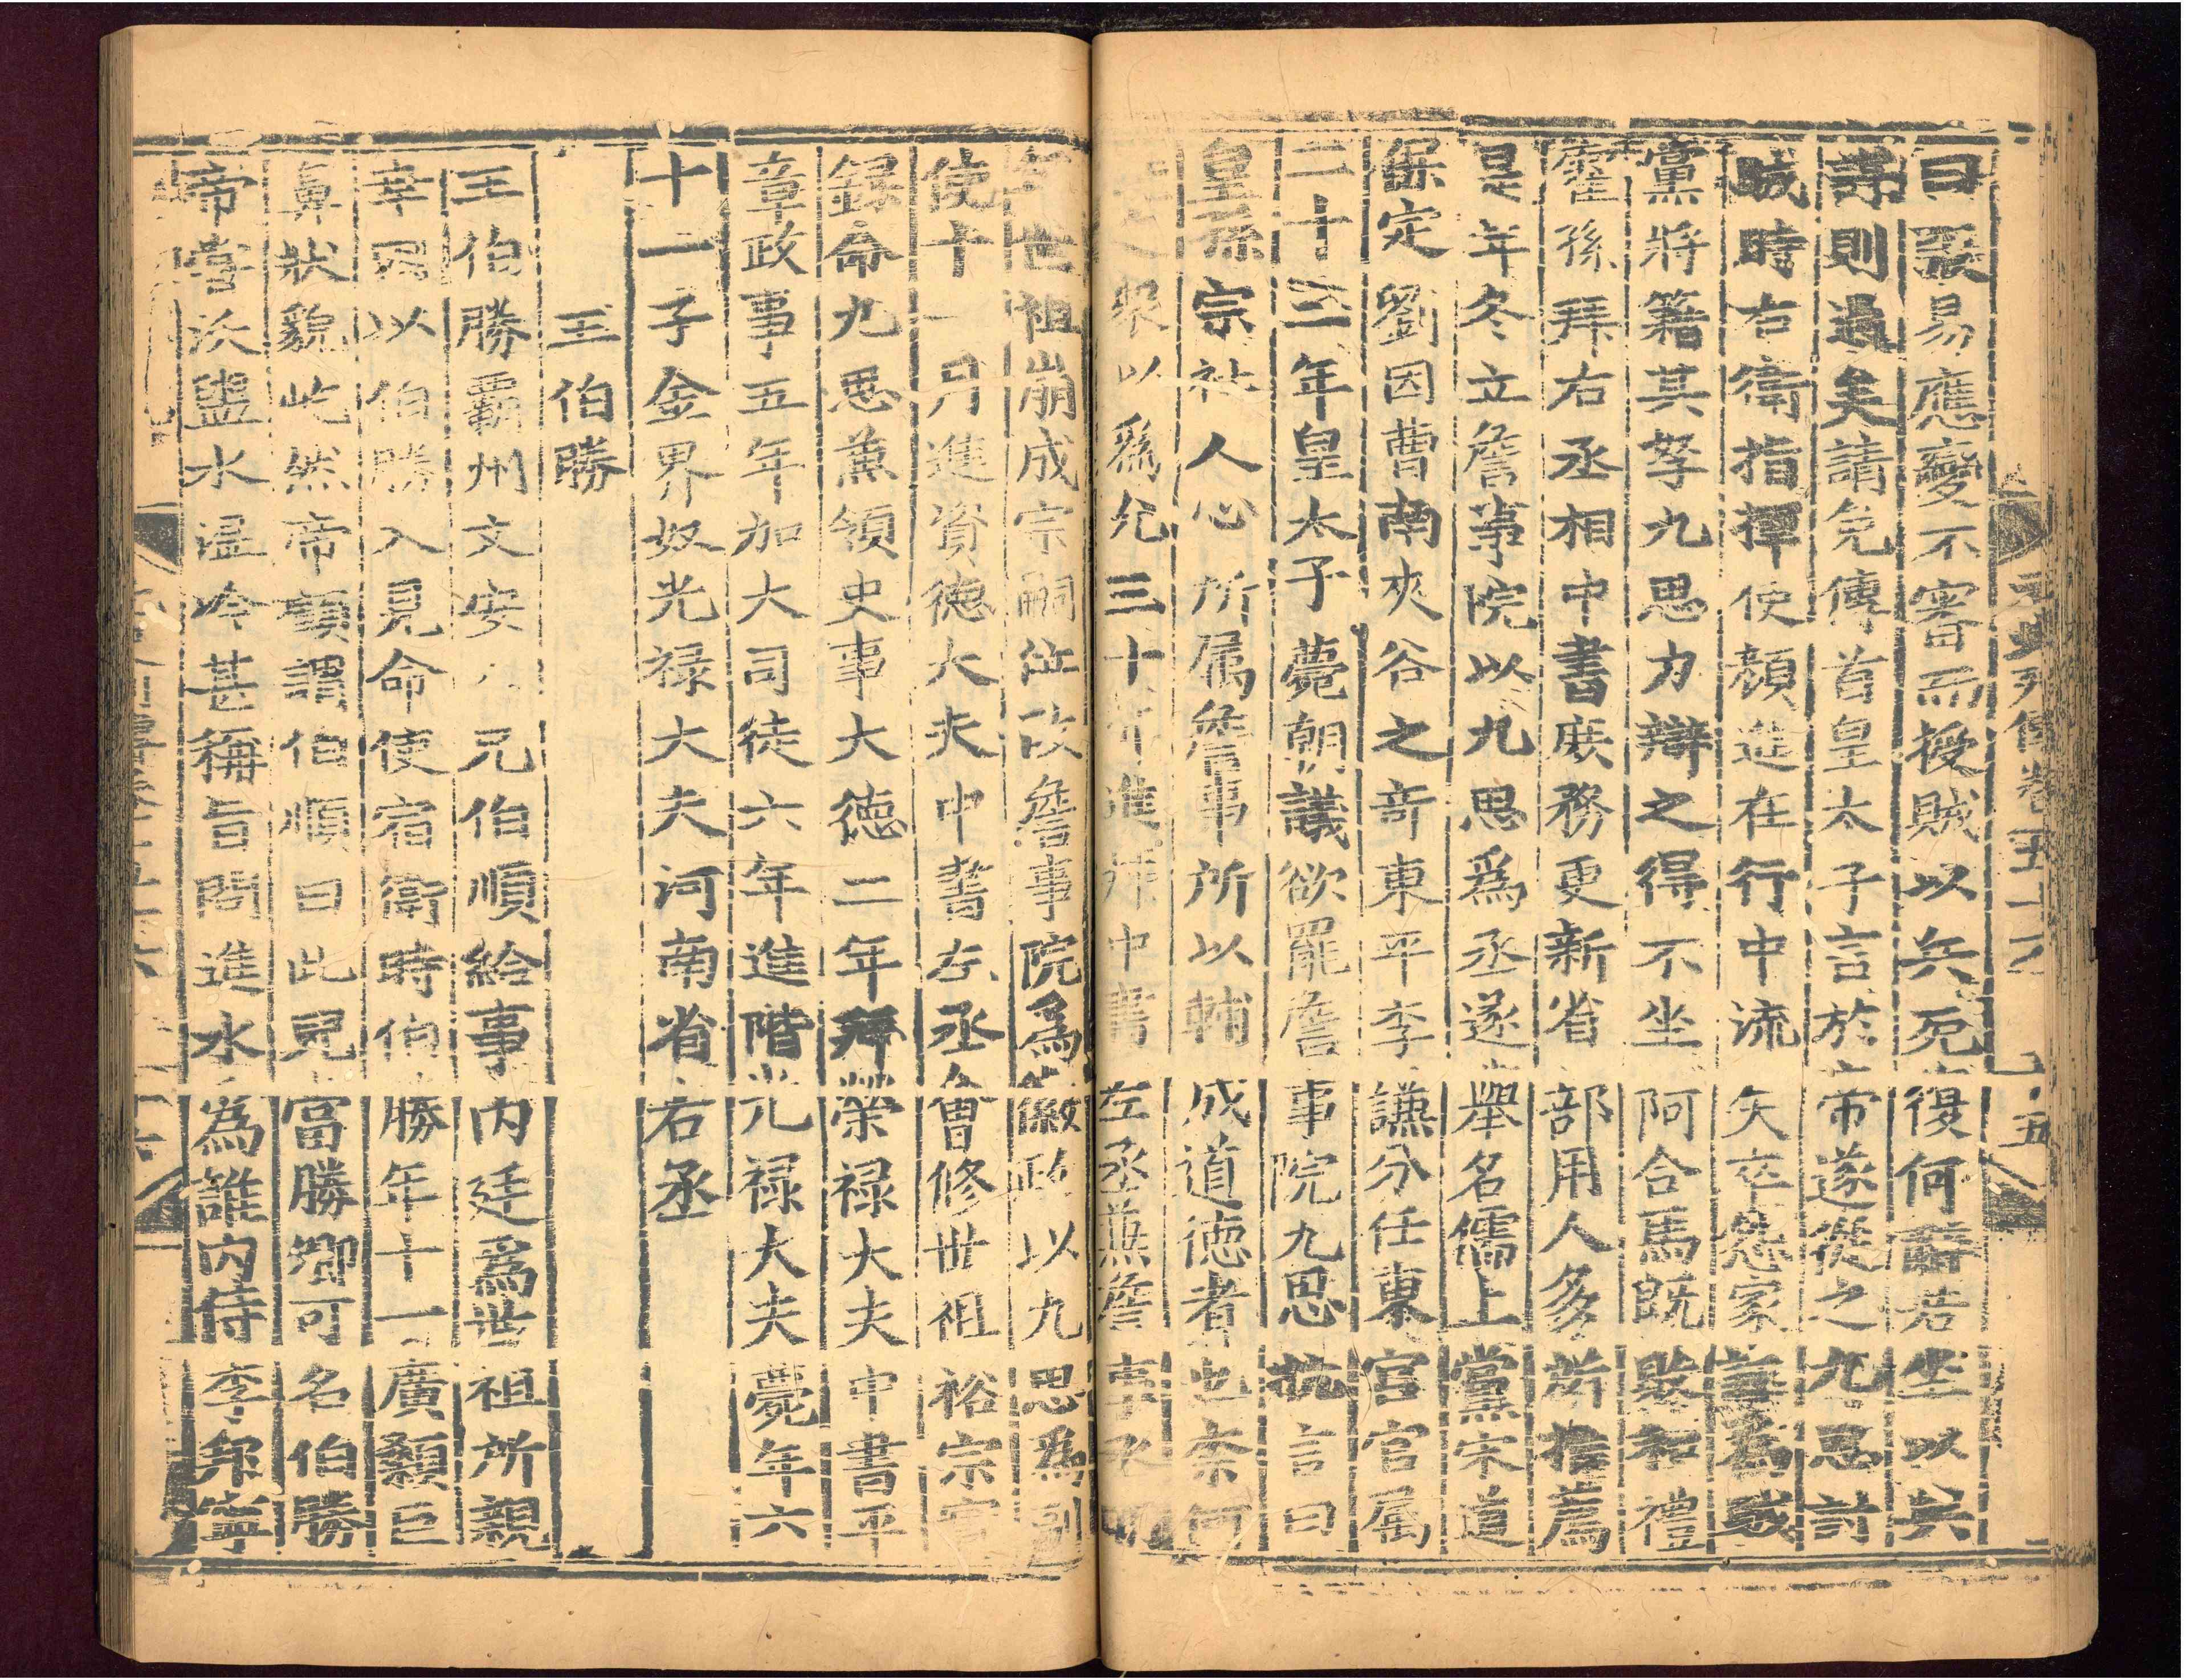 元史列傳卷五十六
十五
曰設易應變不審而授賊以兵死復何辭若坐以共
謀則過矣請免傳首皇太子言於帝遂從之九思討
賊時右衛指揮使顏進在行中流矢卒怨家誣爲賊
黨將籍其孥九思力辯之得不坐阿合馬旣敗和禮
霍孫拜右丞相中書庶務更新省部用人多所推薦
是年冬立詹事院以九思爲丞遂舉名儒上黨宋道
保定劉因曹南夾谷之奇東平李謙分任東宮官屬
二十二年皇太子薨朝議欲罷詹事院九思抗言曰
皇孫宗社人心所屬詹事所以輔成道德者也柰何
之衆以爲允三十年進拜中書左丞兼詹事丞明
年世祖崩成宗嗣位改詹事院爲徽政以九思爲副
使十一月進資德大夫中書左丞會修世祖裕宗實
錄命九思兼領史事大德二年拜榮祿大夫中書平
章政事五年加大司徒六年進階光祿大夫薨年六
十一子金界奴光祿大夫河南省右丞
王伯勝
王伯勝霸州文安人兄伯順給事內廷爲世祖所親
幸因以伯勝入見命使宿衛時伯勝年十一廣顙巨
鼻狀貌屹然帝顧謂伯順曰此兒當勝卿可名伯勝
帝嘗沃盥水溫冷甚稱旨問進水爲誰內侍李邦寧